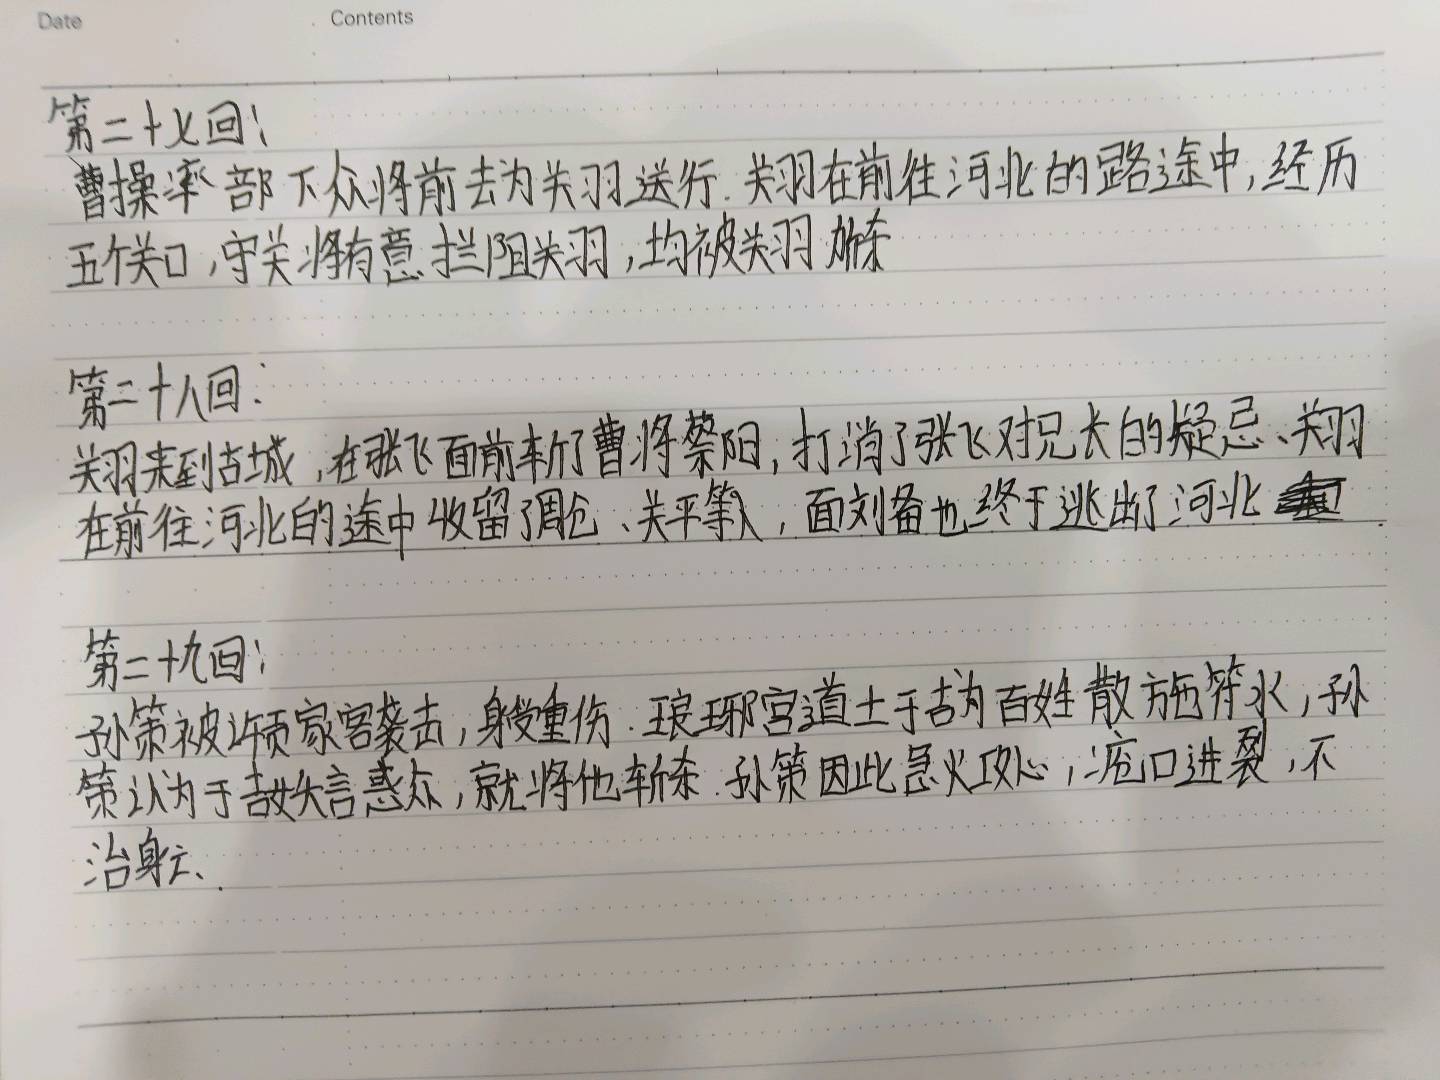 Date Contents
第二十七回：
曹操率部下众将前去为关羽送行.关羽在前往河北的路途中,经历
五个关口,守关将有意拦阻关羽,均被关羽所杀
第二十八回：
关羽来到古城,在张飞面前斩了曹将蔡阳,打消了张飞对兄长的疑忌、关羽
在前往河北的途中收留了周仓、关平等人,面刘备也终于逃出了河北
第二十九回：
孙策被许贡家客袭击,身受重伤.琅琊宫道士于吉为百姓散施符水,孙
策认为于吉妖言惑众,就将他斩杀.孙策因此急火攻心,疮口迸裂,不
治身亡、